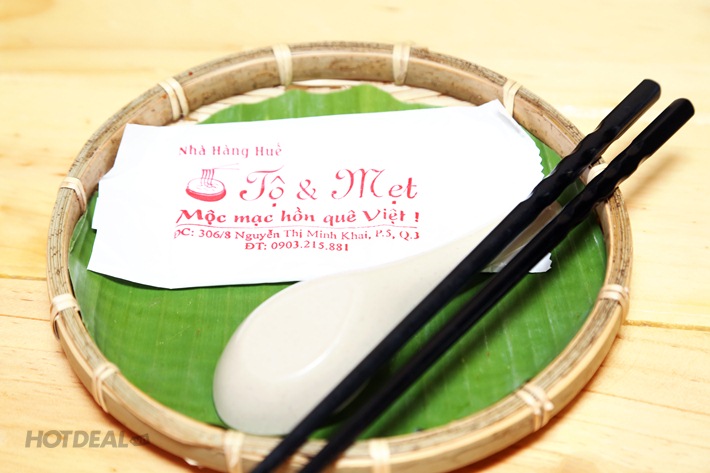 Nhà Hàng Huế
Tộ & Mẹt
Mộc mạc hồn quê Việt !
ĐC: 306/8 Nguyễn Thị Minh Khai, P.5, Q.3
ĐT: 0903.215.881
HOTDEAL